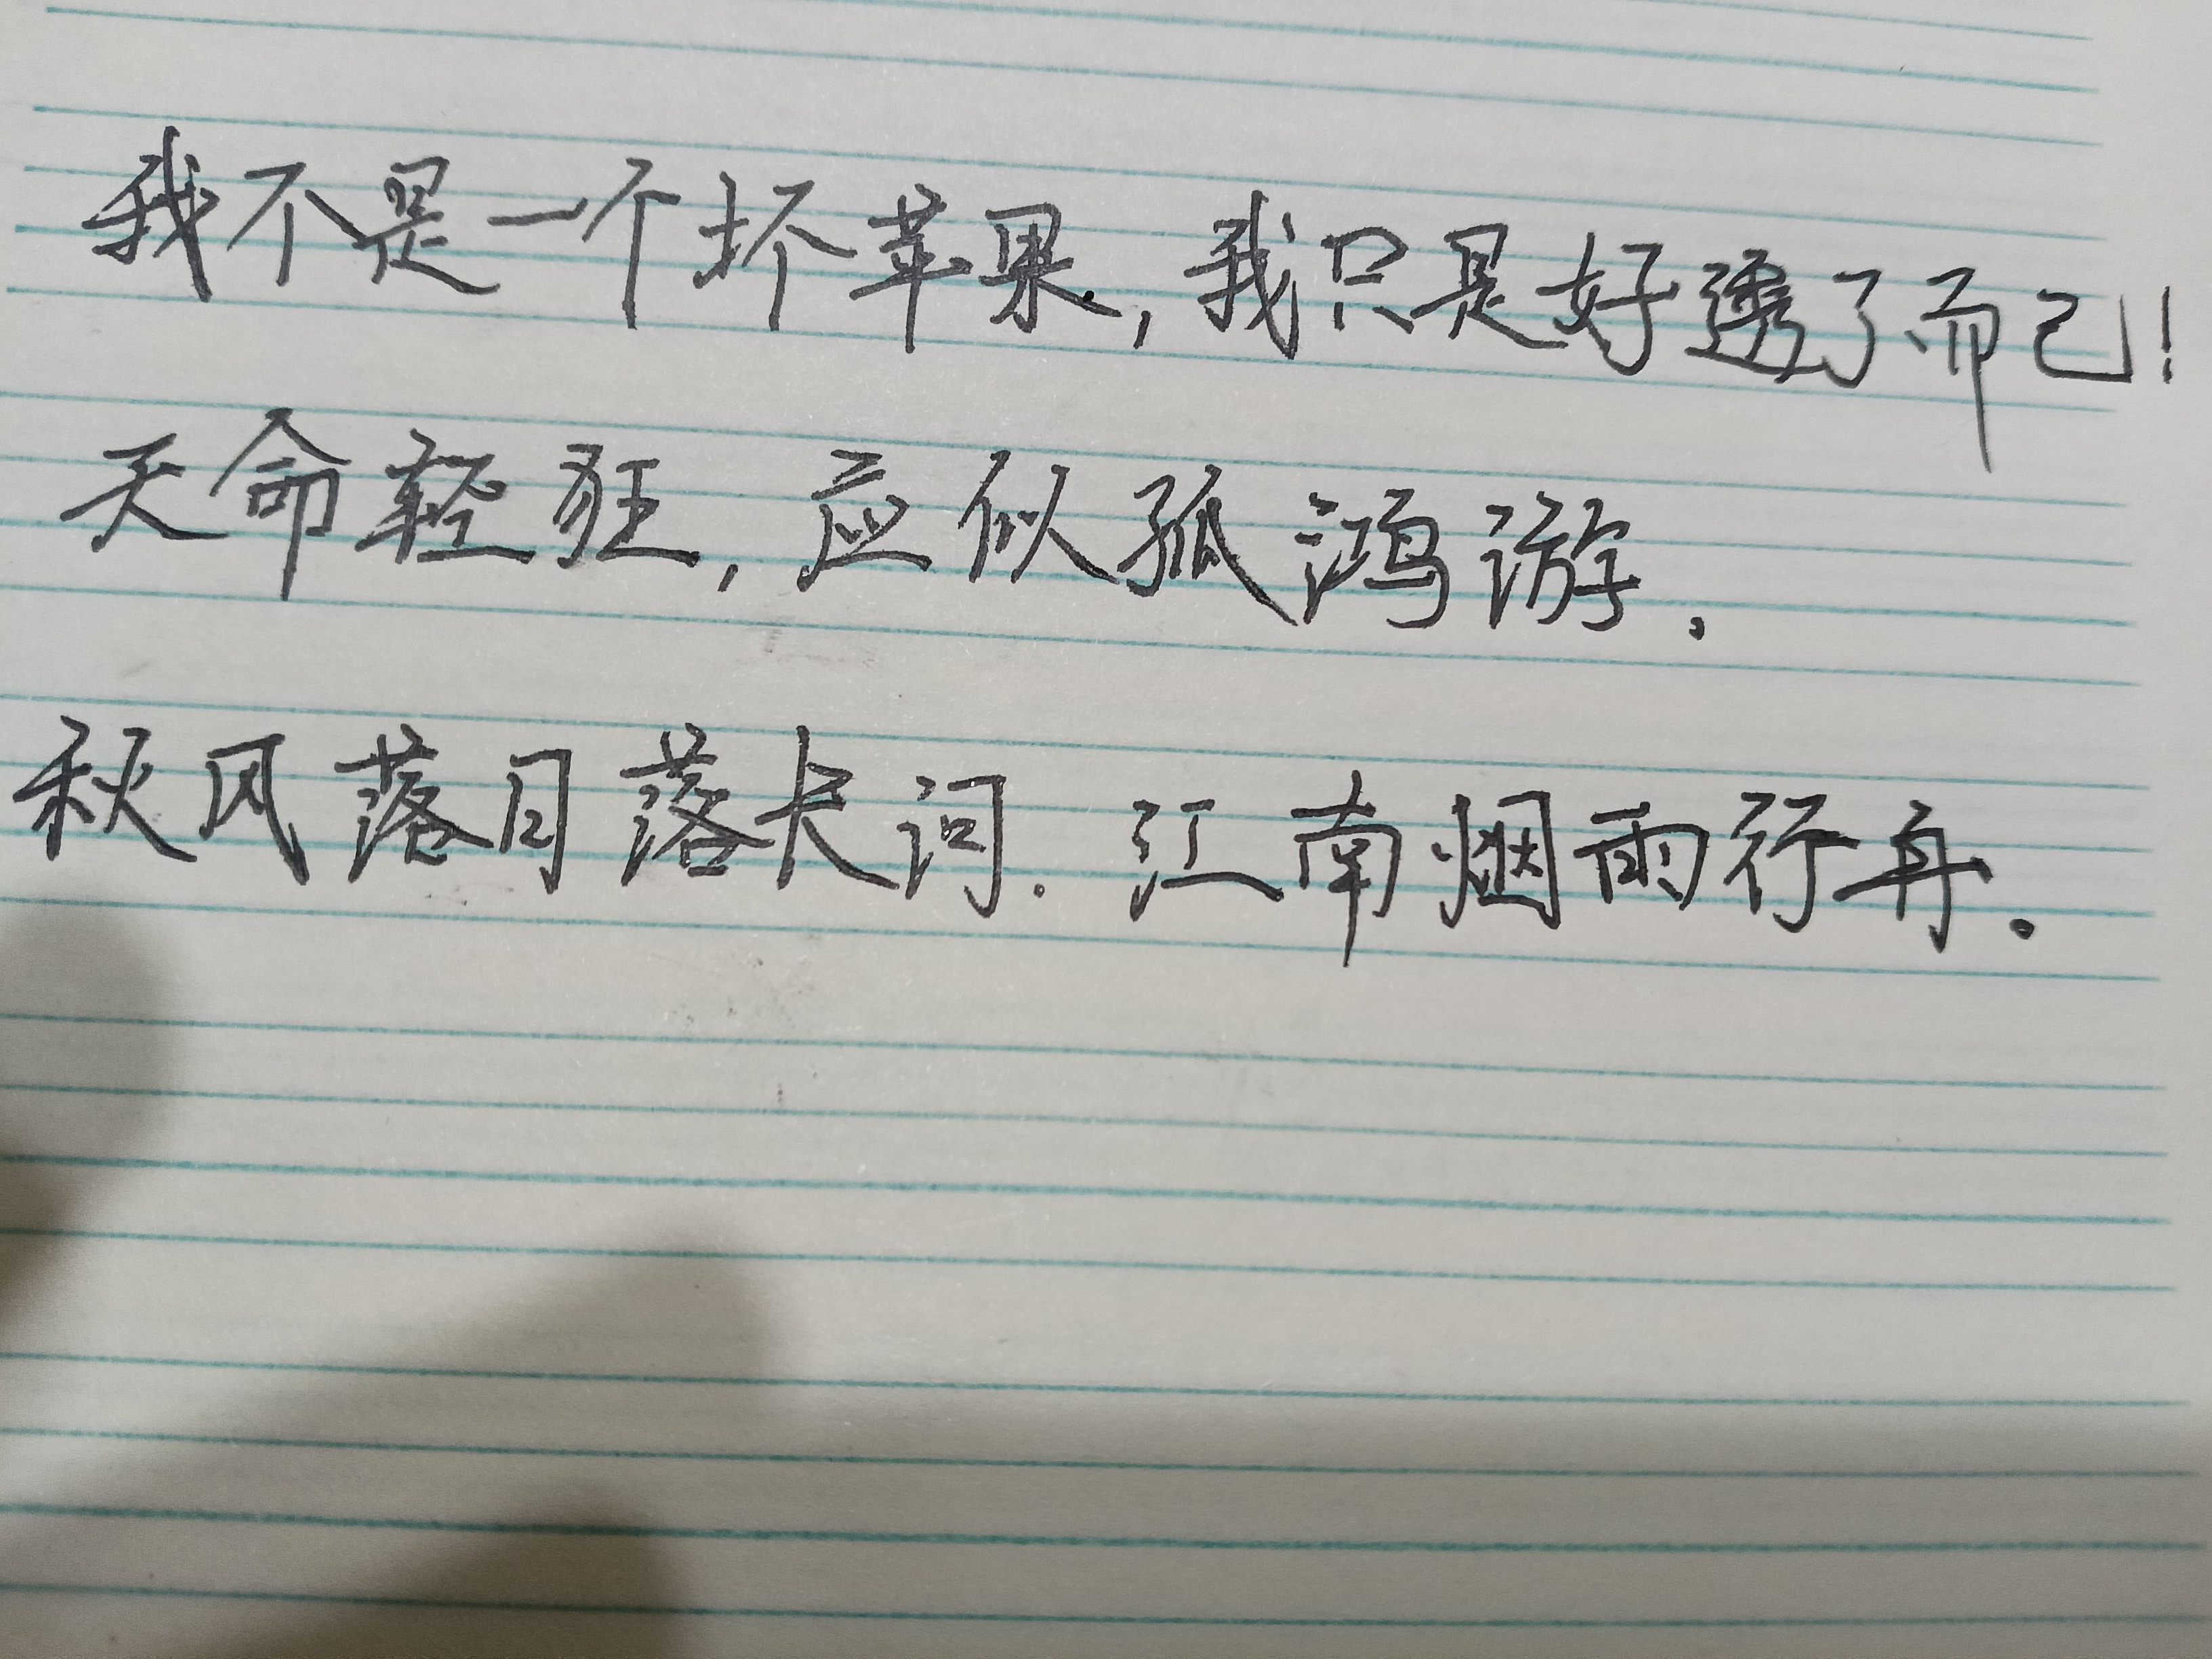 我不是一个坏苹果,我只是好透了而己!
天命轻狂,应似孤鸿游.
秋风落月落长词.江南烟雨行舟.